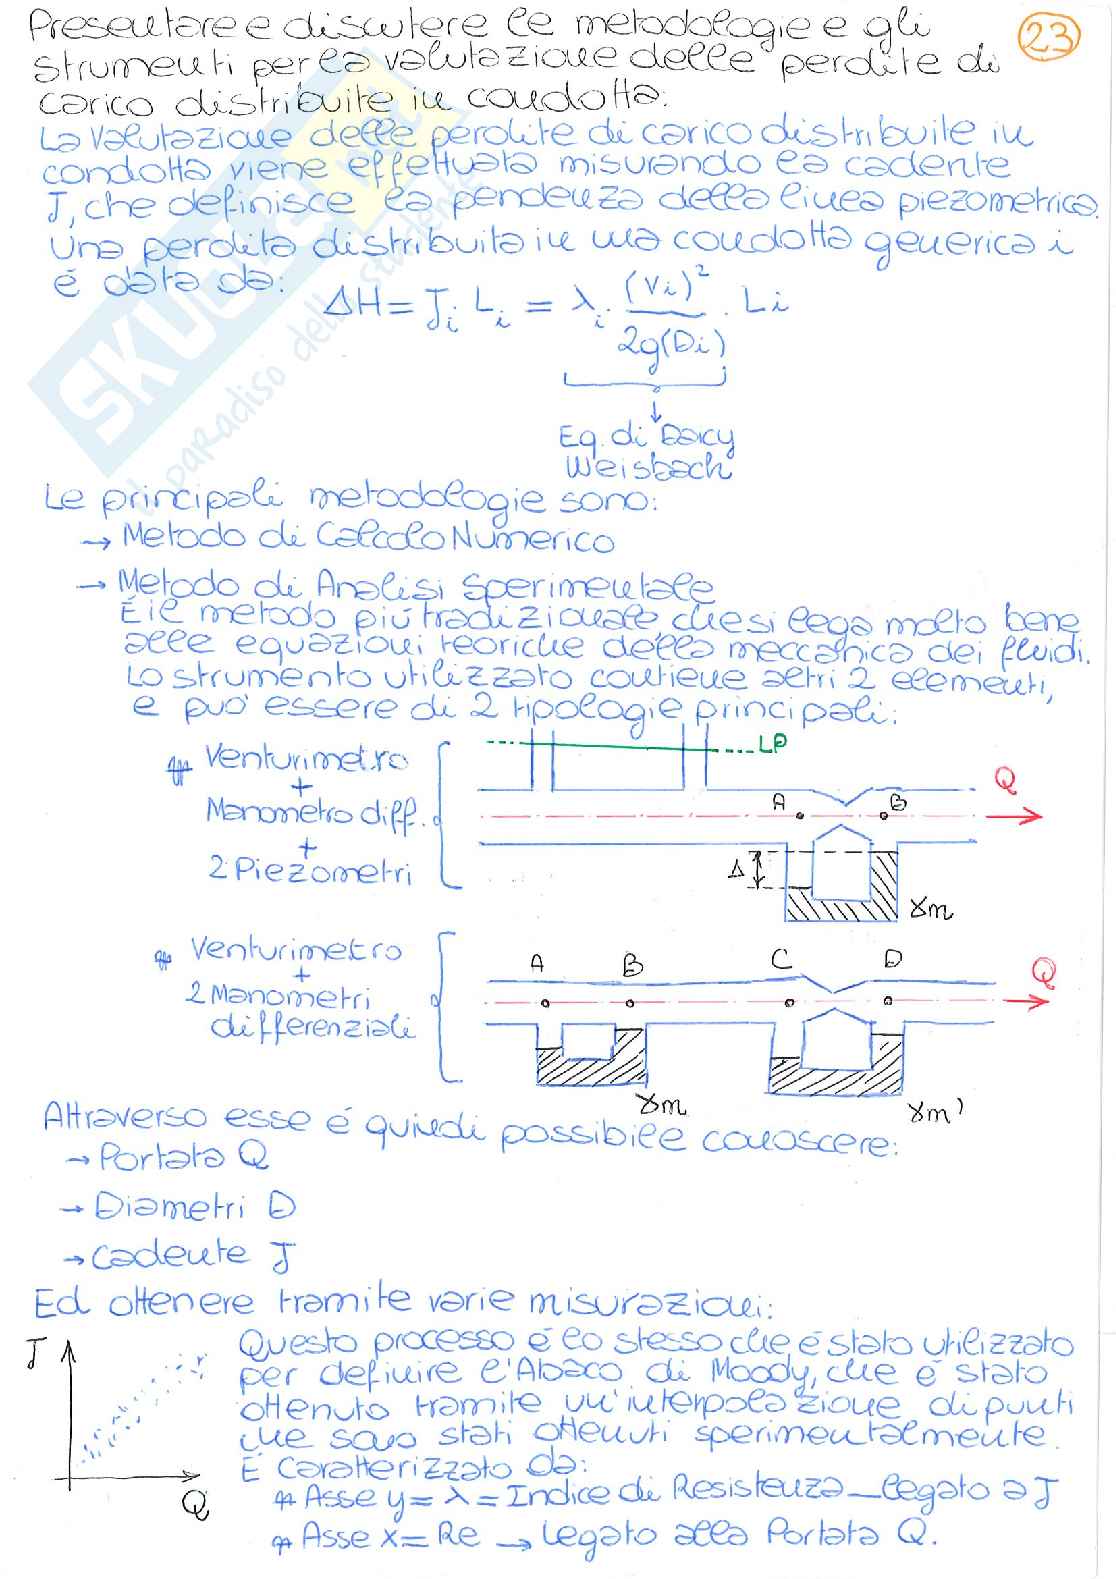 Presentare e discutere le metodologie e gli
23
strumenti per la valutazione delle perdite di
carico distribuite in condotta.
La valutazione delle perdite di carico distribuite in
condotta viene effettuata misurando la cadente
J, che definisce la pendenza della linea piezometrica.
Una perdita distribuita in una condotta generica i
é data da:
ΔH = Ji Li = λi (Vi)² / 2g(Di) · Li
Eq. di Darcy
Weisbach
SKUOLA.net
il paradiso dello studente
Le principali metodologie sono:
→ Metodo di Calcolo Numerico
→ Metodo di Analisi Sperimentale
É il metodo piú tradizionale che si lega molto bene
alle equazioni teoriche della meccanica dei fluidi.
Lo strumento utilizzato contiene altri 2 elementi,
e puo' essere di 2 tipologie principali:
Venturimetro
+
Manometro diff.
+
2 Piezometri
LP
A B Q
Δ
γm
Venturimetro
+
2 Manometri
differenziali
A B C D Q
γm γm'
Attraverso esse é quindi possibile conoscere:
→ Portata Q
→ Diametri D
→ Cadente J
Ed ottenere tramite varie misurazioni:
J
Q
Questo processo é lo stesso che é stato utilizzato
per definire l'Abaco di Moody, che é stato
ottenuto tramite un'interpolazione di punti
che sono stati ottenuti sperimentalmente.
É caratterizzato da:
Asse y = λ = Indice di Resistenza - legato a J
Asse x = Re → Legato alla Portata Q.